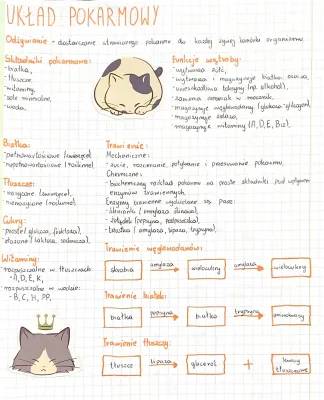 UKŁAD POKARMOWY
Odżywianie - dostarczanie strawionego pokarmu do każdej żywej komórki organizmu.
Składniki pokarmowe:
- białka,
- tłuszcze,
- witaminy,
- sole mineralne,
- woda.
Funkcje wątroby:
- wytwarza żółć,
- wytwarza i magazynuje białka osocza,
- unieszkodliwia toksyny (np. alkohol),
- zamienia amoniak w mocznik,
- magazynuje węglowodany (glukoza→glikogen),
- magazynuje żelazo,
- magazynuje witaminy (A, D, E, B12).
Białka:
- pełnowartościowe (zwierzęce)
- niepełnowartościowe (roślinne).
Tłuszcze:
- nasycone (zwierzęce),
- nienasycone (roślinne).
Cukry:
- proste (glukoza, fruktoza),
- złożone (laktoza, sacharoza).
Witaminy:
- rozpuszczalne w tłuszczach:
- A, D, E, K,
- rozpuszczalne w wodzie:
- B, C, H, PP.
Trawienie:
Mechaniczne:
- żucie, rozcieranie, połykanie i przesuwanie pokarmu.
Chemiczne:
- biochemiczny rozkład pokarmu na proste składniki pod wpływem
enzymów trawiennych.
Enzymy trawienne wydzielane są przez:
- ślinianki (amylaza ślinowa),
- żołądek (pepsyna, podpuszczka),
- trzustka (amylaza, lipaza, trypsyna).
Trawienie węglowodanów:
skrobia amylaza wielocukry amylaza wielocukry
Trawienie białek:
białka pepsyna białka trypsyna aminokwasy
Trawienie tłuszczy:
tłuszcze lipaza glicerol + kwasy tłuszczowe